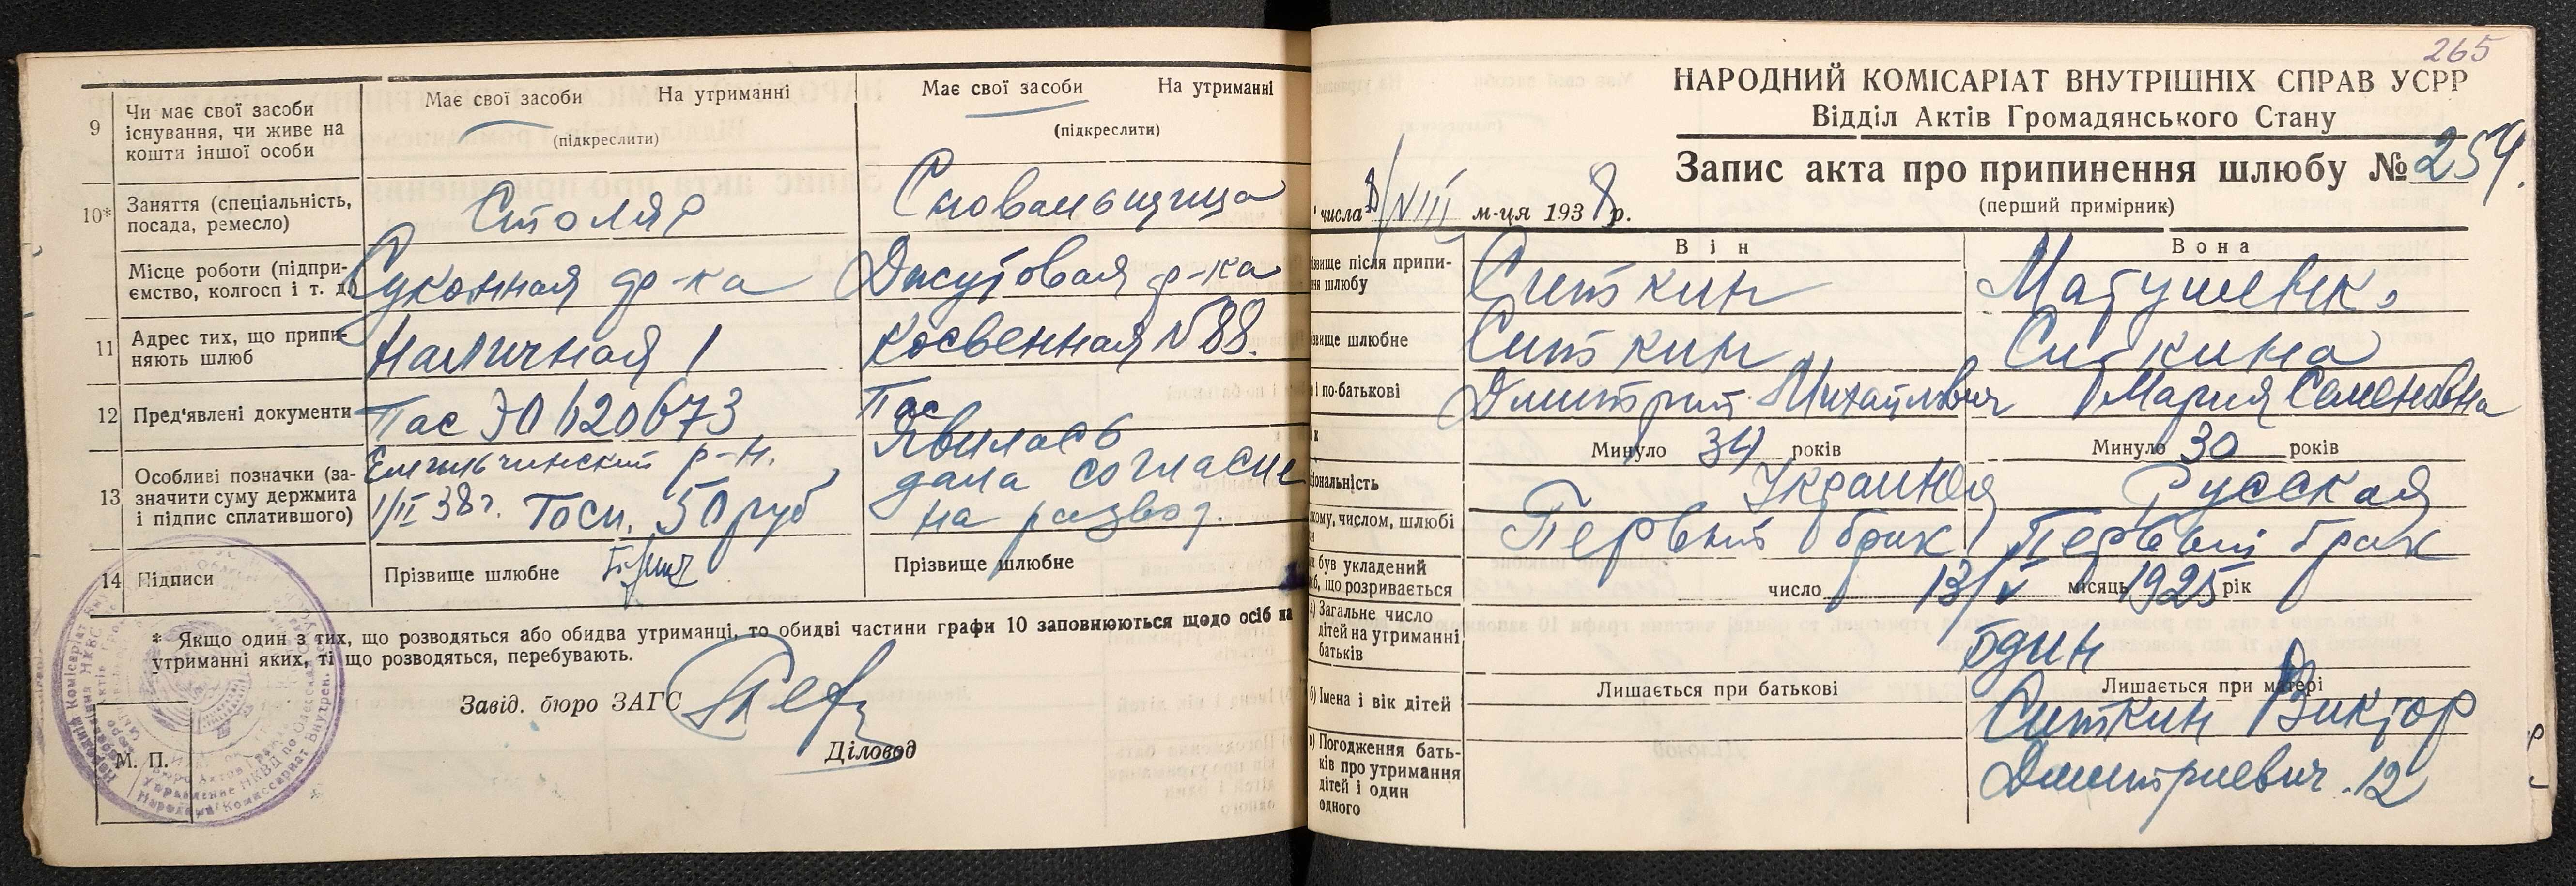 9
Чи має свої засоби
існування, чи живе на
кошти іншої особи
Має свої засоби На утриманні
(підкреслити)
Має свої засоби На утриманні
(підкреслити)
10*
Заняття (спеціальність,
посада, ремесло)
Столяр
Сновальщица
Місце роботи (підпри-
ємство, колгосп і т. д.)
Суконная ф-ка
Джутовая ф-ка
11
Адрес тих, що припи-
няють шлюб
Наличная 1
Косвенная №88.
12
Пред'явлені документи
Пас 620673
Пас
13
Особливі позначки (за-
значити суму держмита
і підпис сплатившого)
Емильчинский р-н.
1/II 38г. Госп. 50 руб
Явилась
дала согласие
на развод.
14
Підписи
Прізвище шлюбне
Прізвище шлюбне
* Якщо один з тих, що розводяться або обидва утриманці, то обидві частини графи 10 заповнюються щодо осіб на
утриманні яких, ті що розводяться, перебувають.
Завід. бюро ЗАГС
Діловод
М. П.
265
НАРОДНИЙ КОМІСАРІАТ ВНУТРІШНІХ СПРАВ УСРР
Відділ Актів Громадянського Стану
Запис акта про припинення шлюбу № 259.
(перший примірник)
числа 8/VIII м-ця 1938 р.
Він
Вона
звище після припи-
ня шлюбу
Ситкин
Матушевск.
звище шлюбне
Ситкин
Ситкина
і по-батькові
Дмитрий Михайлович
Мария Семеновна
Минуло 34 років
Минуло 30 років
іональність
Украинец
Русская
кому, числом, шлюбі
Первый брак
Первый брак
був укладений
б, що розривається
число 13/V місяць 1925 рік
а) Загальне число
дітей на утриманні
батьків
один
б) Імена і вік дітей
Лишається при батькові
Лишається при матері
Ситкин Виктор
Дмитриевич. 12
в) Погодження бать-
ків про утримання
дітей і один
одного